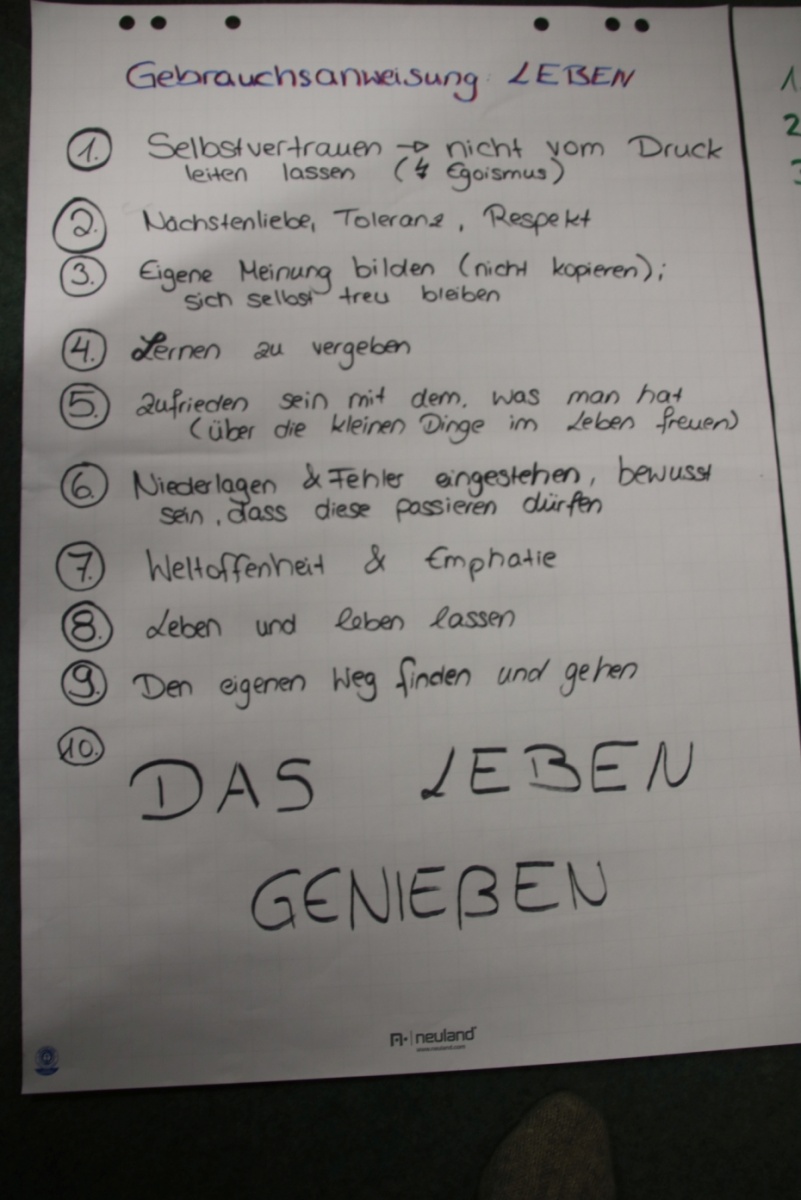 Gebrauchsanweisung LEBEN
1. Selbstvertrauen → nicht vom Druck
leiten lassen (↯ Egoismus)
2. Nächstenliebe, Toleranz, Respekt
3. Eigene Meinung bilden (nicht kopieren);
sich selbst treu bleiben
4. Lernen zu vergeben
5. Zufrieden sein mit dem, was man hat
(über die kleinen Dinge im Leben freuen)
6. Niederlagen & Fehler eingestehen, bewusst
sein, dass diese passieren dürfen
7. Weltoffenheit & Emphatie
8. Leben und leben lassen
9. Den eigenen Weg finden und gehen
10. DAS LEBEN
GENIEßEN
neuland
www.neuland.com
1
2
3